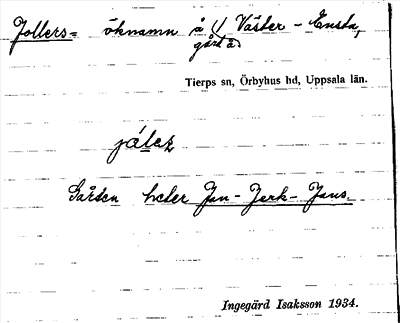 Jollers= öknamn å 1/ Väster-Ensta,
gård å
Tierps sn, Örbyhus hd, Uppsala län.
jález
Gården heter Jan-Jerk-Jans.
Ingegärd Isaksson 1934.